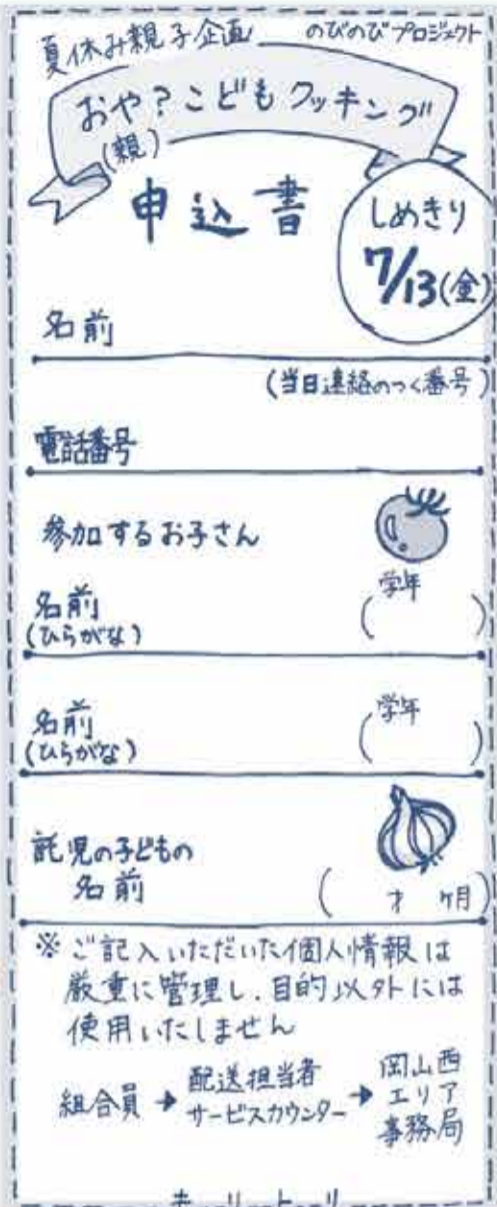 夏休み親子企画 のびのびプロジェクト
おや?こどもクッキング
(親)
申込書
しめきり
7/13(金)
名前
(当日連絡のつく番号)
電話番号
参加するお子さん
名前 (学年 )
(ひらがな)
名前 (学年 )
(ひらがな)
託児の子どもの
名前 ( 才 ヶ月)
※ご記入いただいた個人情報は
厳重に管理し、目的以外には
使用いたしません
組合員→配送担当者
サービスカウンター→岡山西
エリア
事務局
キリトリ